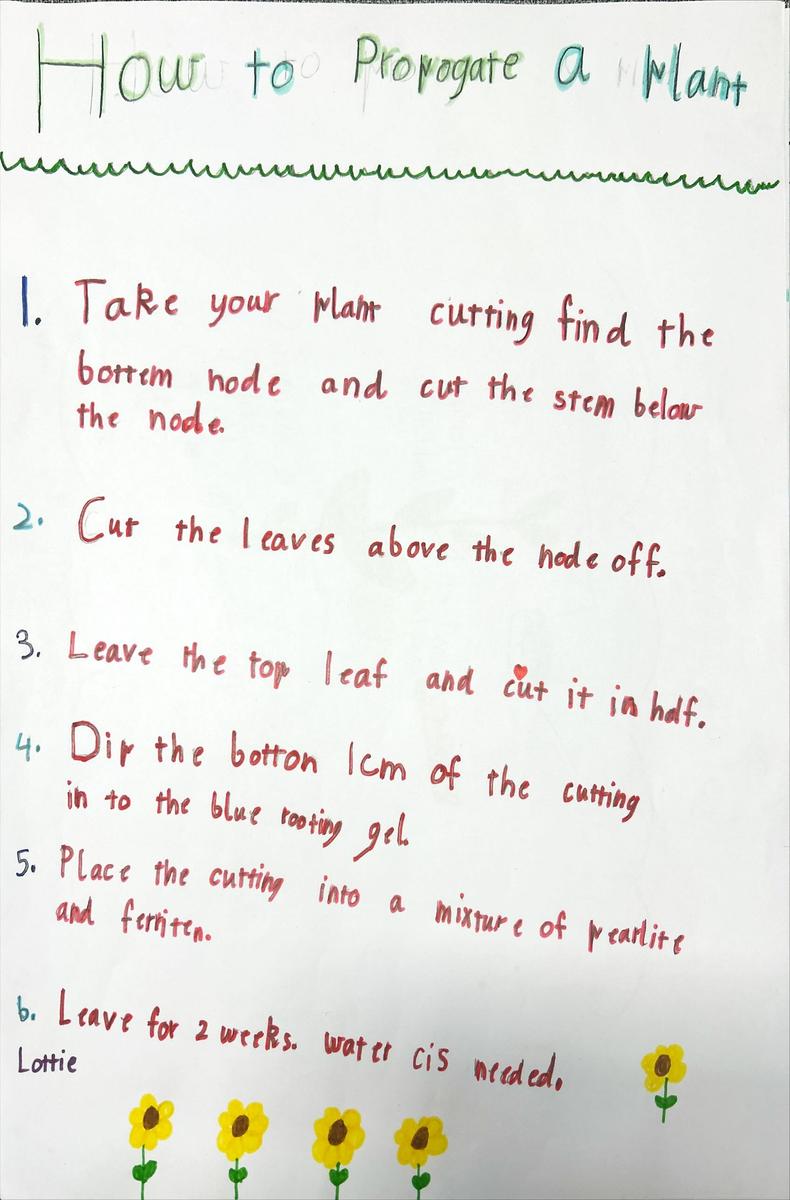 How to Propogate a Plant
1. Take your plant cutting find the
bottem node and cut the stem below
the node.
2. Cut the leaves above the node off.
3. Leave the top leaf and cut it in half.
4. Dip the botton 1cm of the cutting
in to the blue rooting gel.
5. Place the cutting into a mixture of pearlite
and ferriten.
6. Leave for 2 weeks. water cis needed.
Lottie